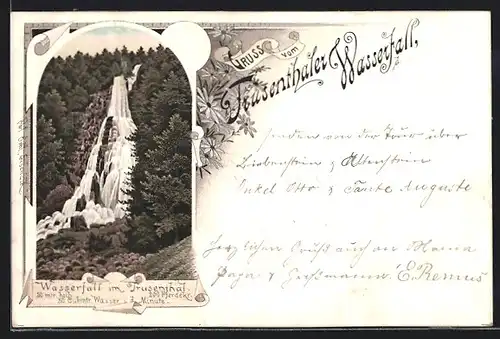 GRUSS vom
Trusenthaler Wasserfall,
senden von der Tour über
Liebenstein & Altenstein
Onkel Otto & Tante Auguste
Herzlichen Gruß auch an Mama
Papa & E. Remus
Wasserfall im Trusenthal
50 mtr. hoch 300 Pferdekr.
30 Cubmtr. Wasser i. d. Minute.